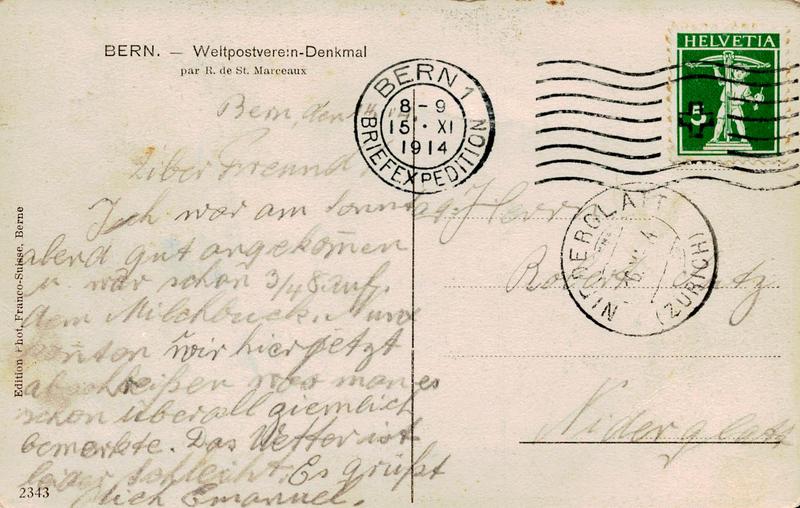 BERN. — Weltpostverein-Denkmal
par R. de St. Marceaux
BERN 1
8-9
15·XI
1914
BRIEFEXPEDITION
HELVETIA
5
NIEDERGLATT
(ZÜRICH)
Bern, den 14.
Liber Freund
Ich war am Sonntag
abend gut angekomen
u war schon 3/4 8 auf
dem Milchbuck.
konten wir hier jetzt
abschließen was man es
schon überall ziemlich
bemerkte. Das Wetter ist
leider schlecht. Es grüßt
dich Emanuel.
Herr
Niderglatt
Edition Phot. Franco-Suisse, Berne
2343